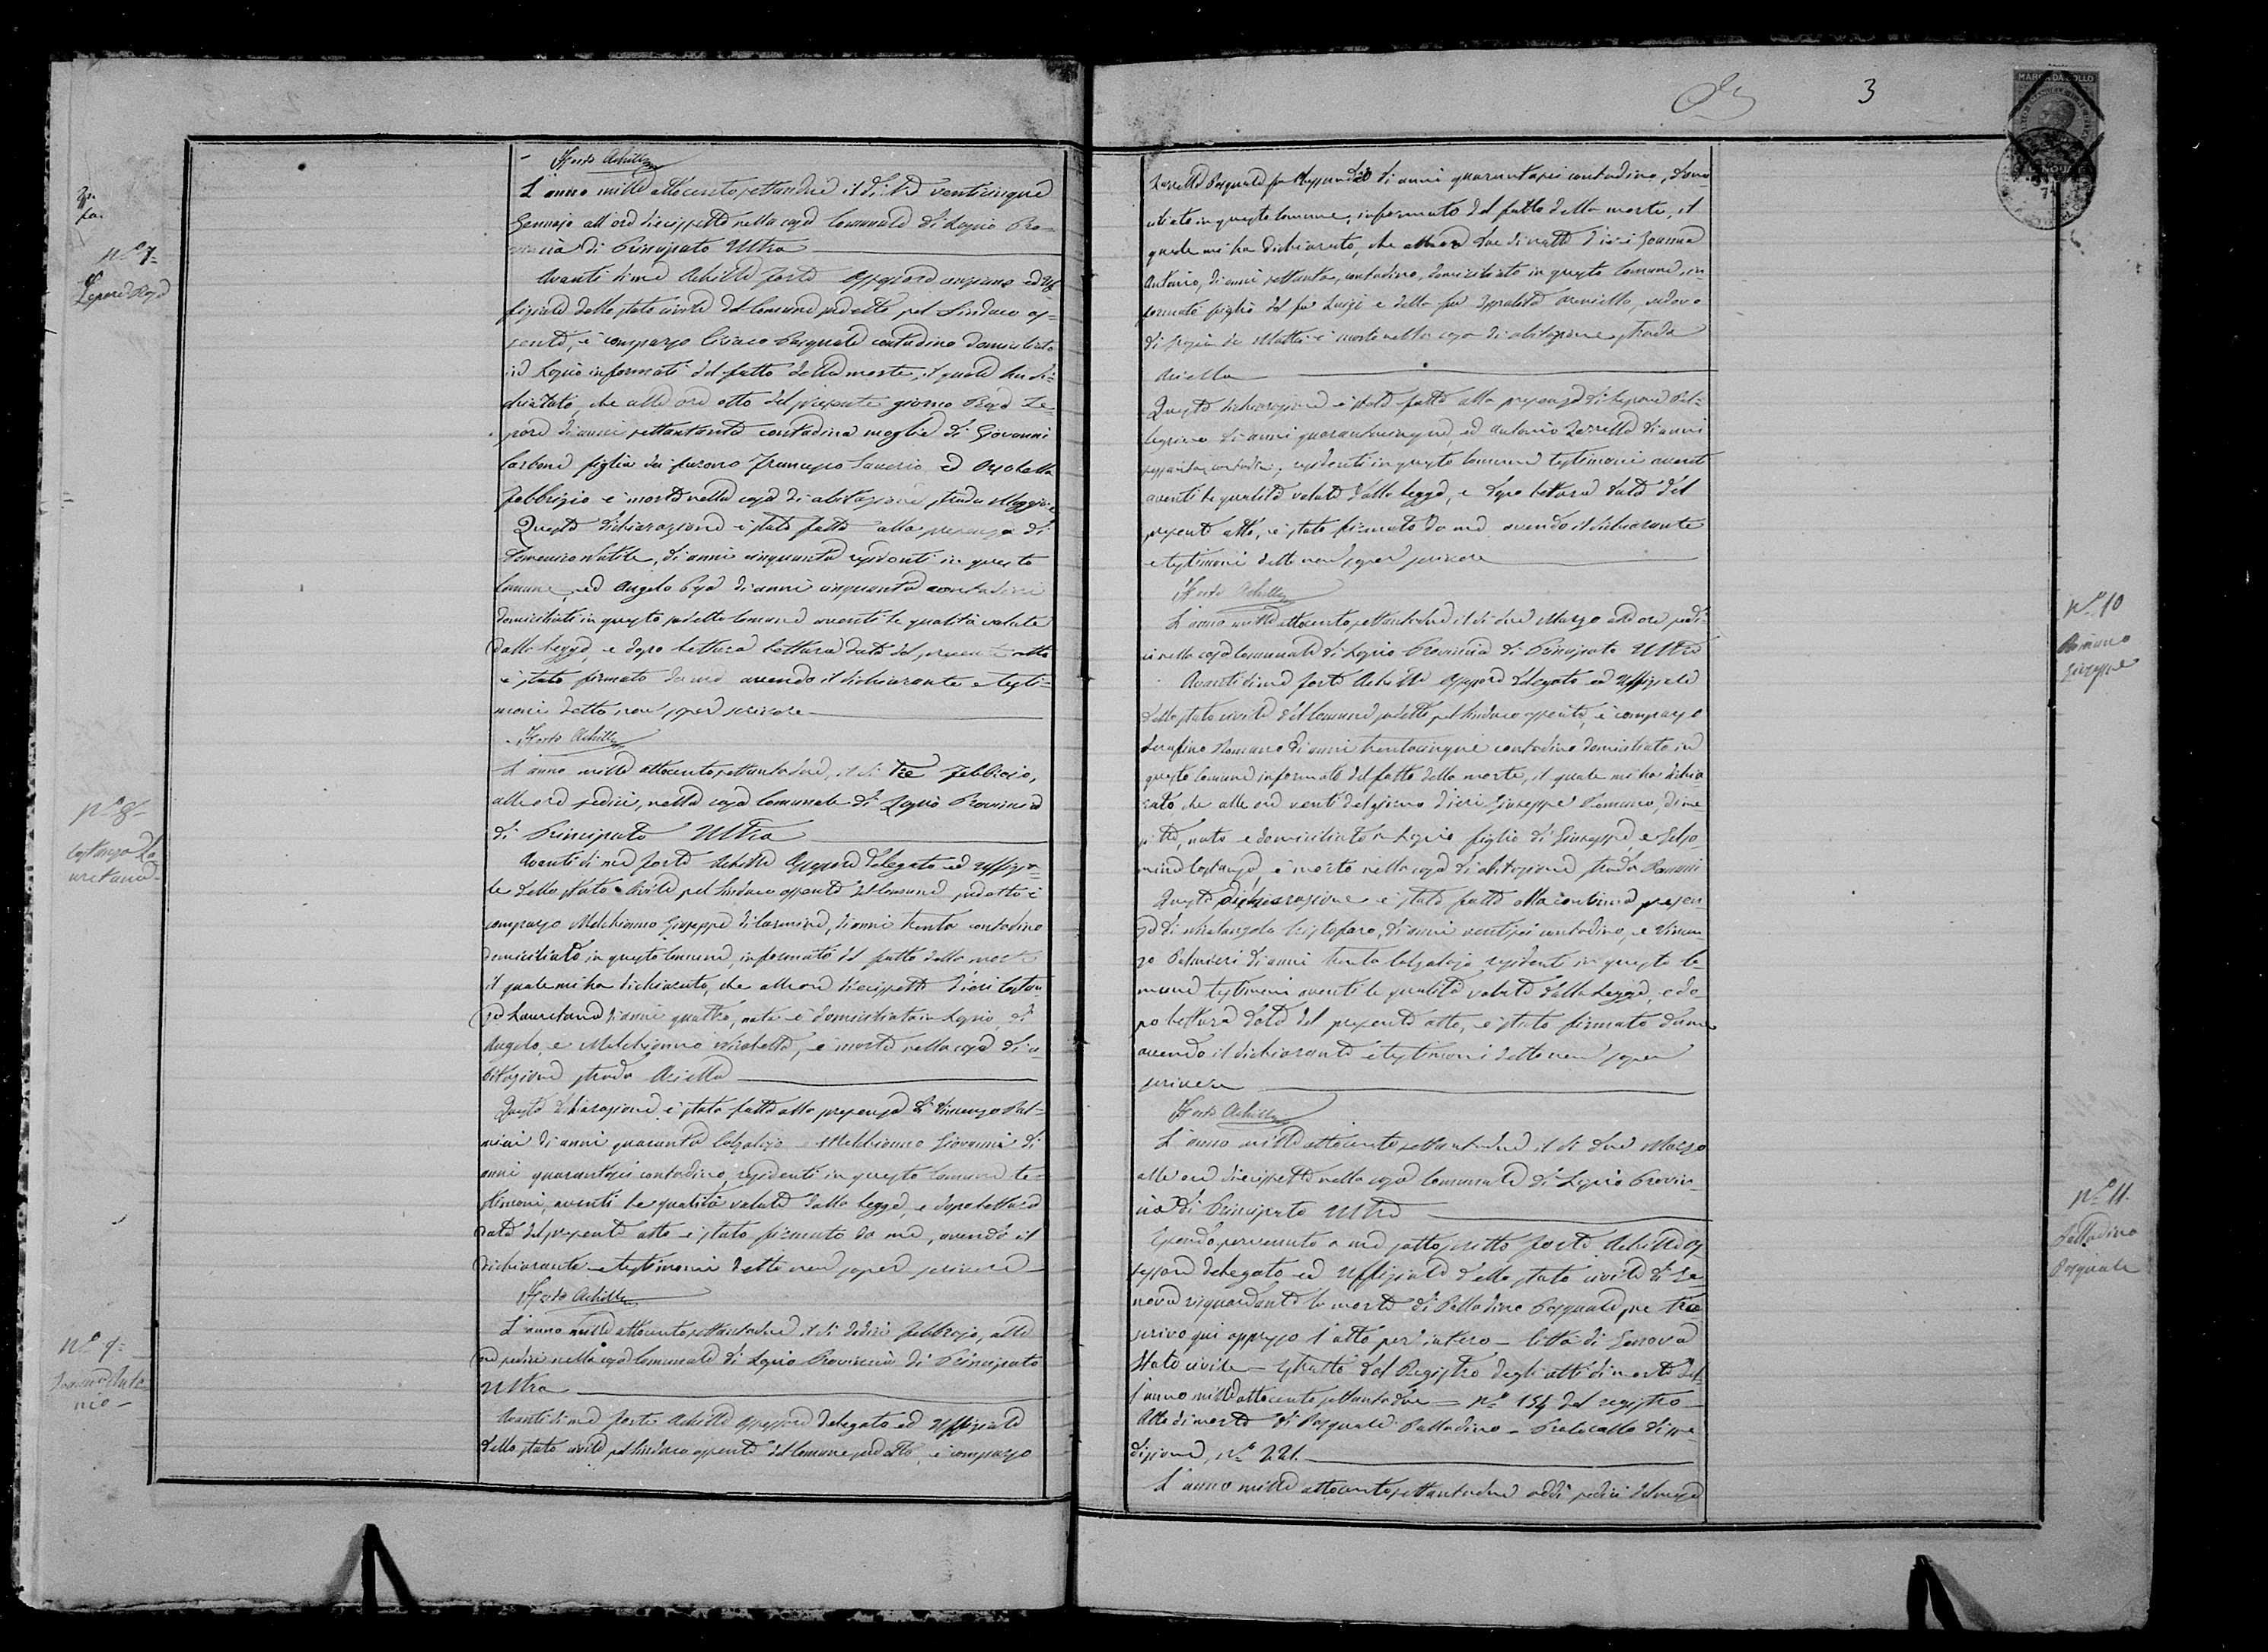 Forte Achille
L'anno mille ottocento settandue il dì ventcinque
Gennajo all'ore diecissette nella casa Comunale di Lapio Pro-
vincia di Principato Ultra
Avanti di me Achille Forte Assessore anziano ed Uf
fiziale dello stato civile del Comune sudetto pel Sindaco as-
sente, è comparso Ciriaco Pasquale contadino domiciliato
in Lapio informato del fatto della morte, il quale ha di-
chiarato, che alle ore otto del presente giorno Rosa Le-
pore di anni settantanta contadina moglie di Giovanni
Carbone figlia dei furono Francesco Saverio ed
Fabbrizio è morta nella casa di abitazione strada
Questa dichiarazione è stata fatta alla presenza di
Domenico di anni cinquanta residenti in questo
Comune, ed Angelo di anni cinquanta contadini
domiciliati in questo sudetto Comune aventi le qualità volute
dalla legge, e dopo lettura lettura data del presente atto
è stato firmato da me avendo il dichiarante e testi-
moni detto non saper scrivere
Forte Achille
L'anno mille ottocento settantadue, il dì tre Febbraio,
alle ore sedici, nella casa Comunale di Lapio Provincia
di Principato Ultra
Avanti di me Forte Achille Assessore delegato ed Uffizia-
le dello Stato Civile pel Sindaco assente del Comune sudetto è
comparso Melchionno Giuseppe di Carmine, di anni trenta contadino
domiciliato in questo Comune, informato del fatto della morte
il quale mi ha dichiarato, che alle ore diecissette d'ieri Costan-
za Lauretana di anni quattro, nata e domiciliata in Lapio, di
Angelo, e Melchionno è morta nella casa di a-
bitazione strada Ariella
Questa dichiarazione è stata fatta alla presenza di Vincenzo Pal-
mieri di anni quaranta Calzolajo e Melchionno Giovanni di
anni quarantasei contadino, residenti in questo Comune te-
stimoni, aventi le qualità volute dalla legge, e dopo lettura
data del presente atto è stato firmato da me, avendo il
dichiarante e testimoni detto non saper scrivere
Forte Achille
L'anno mille ottocento settantadue il dì dodici Febbrajo, alle
ore sedici nella casa Comunale di Lapio Provincia di Principato
Ultra
Avanti di me Forte Achille Assessore delegato ed Uffiziale
dello stato civile pel Sindaco assente del Comune sudetto, è comparso
No 7
Lepore Rosa
No 8
Costanza La
uretana
No 9
Anto
nio
3
MARCA DA BOLLO
Zarrella Pasquale fu di anni quarantasei contadino, domi
ciliato in questo Comune, informato del fatto della morte, il
quale mi ha dichiarato, che alle ore due di notte d'ieri
Antonio, di anni settanta, contadino, domiciliato in questo Comune, in
formato figlio del fu Luigi e della fu Ippolita vedovo
di è morto nella casa di abitazione strada
Ariella
Questa dichiarazione è stata fatta alla presenza di Lepore Pel-
legrino di anni quarantacinque, ed Antonio Zarrella di anni
sessanta, contadini, residenti in questo Comune testimoni aventi
aventi le qualità volute dalla legge, e dopo lettura data del
presente atto, è stato firmato da me avendo il dichiarante
e testimoni detto non saper scrivere
Forte Achille
L'anno mille ottocento settantadue il dì due Marzo alle ore sedi-
ci nella casa Comunale di Lapio Provincia di Principato Ultra
Avanti di me Forte Achille Assessore delegato ed Uffiziale
dello stato civile del Comune sudetto, pel Sindaco assente, è comparso
Serafino Romano di anni trentacinque contadino domiciliato in
questo Comune informato del fatto della morte, il quale mi ha dichia
rato che alle ore venti del giorno d'ieri Giuseppe Romano, di me
si tre, nato e domiciliato in Lapio figlio di Giuseppe, e Gelso
mina Costanza, è morto nella casa di abitazione strada Romani
Questa dichiarazione è stata fatta alla continua presen-
za di Michelangelo Cristofaro, di anni ventisei contadino, e Vincen-
zo Palmieri di anni trenta Calzolajo residenti in questo Co-
mune testimoni aventi le qualità volute dalla legge, e do-
po lettura data del presente atto, è stato firmato da me
avendo il dichiarante e testimoni detto non saper
scrivere
Forte Achille
L'anno mille ottocento settantadue il dì due Marzo
alle ore diecissette nella casa Comunale di Lapio Provin-
cia di Principato Ultra
Essendo pervenuto a me sottoscritto Forte Achille As
sessore delegato ed Uffiziale dello stato civile di Ge
nova risguardante la morte di Palladino Pasquale, ne tra
scrivo qui appresso l'atto per intero - Città di Genova
Stato civile - Estratto dal Registro degli atti di morte del-
l'anno mille ottocento settantadue - No 154 del registro
Atto di morte di Pasquale Palladino - Protocollo di spe
dizione, No 221.
L'anno mille ottocento settantadue addì sedici del mese
No 10
Romano
Giuseppe
No 11.
Palladino
Pasquale